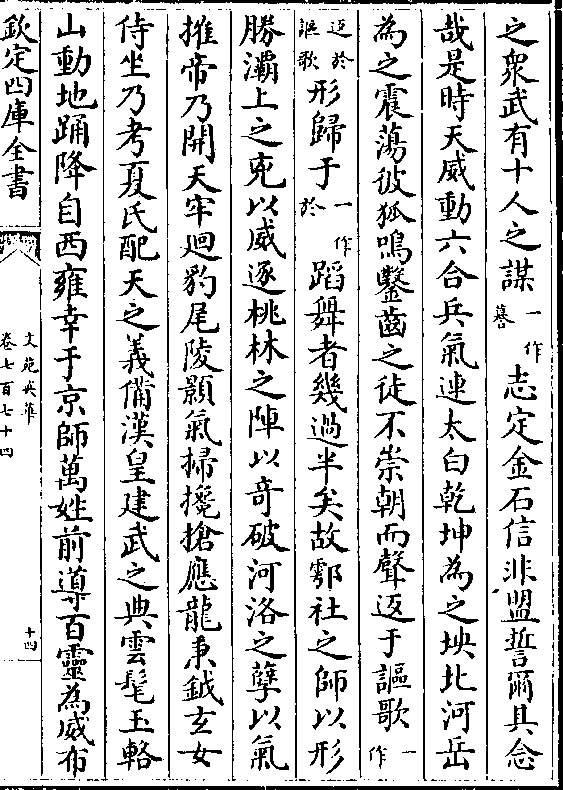 之衆武有十人之謀一作謩志定金石信非盟誓爾其念
哉是時天威動六合兵氣連太白乾坤為之坱北河岳
為之震蕩彼狐鳴鑿齒之徒不崇朝而聲返于謳歌一作
返於謳歌形歸于一作於蹈舞者幾過半矣故鄠社之師以形
勝灞上之兇以威逐桃林之陣以奇破河洛之孽以氣
摧帝乃開天牢迴豹尾陵顥氣掃攙搶應龍秉鉞玄女
侍坐乃考夏氏配天之義備漢皇建武之典雲髦玉輅
山動地踊降自西雍幸于京師萬姓前導百靈為威布
欽定四庫全書
文苑英華
卷七百七十四
十四